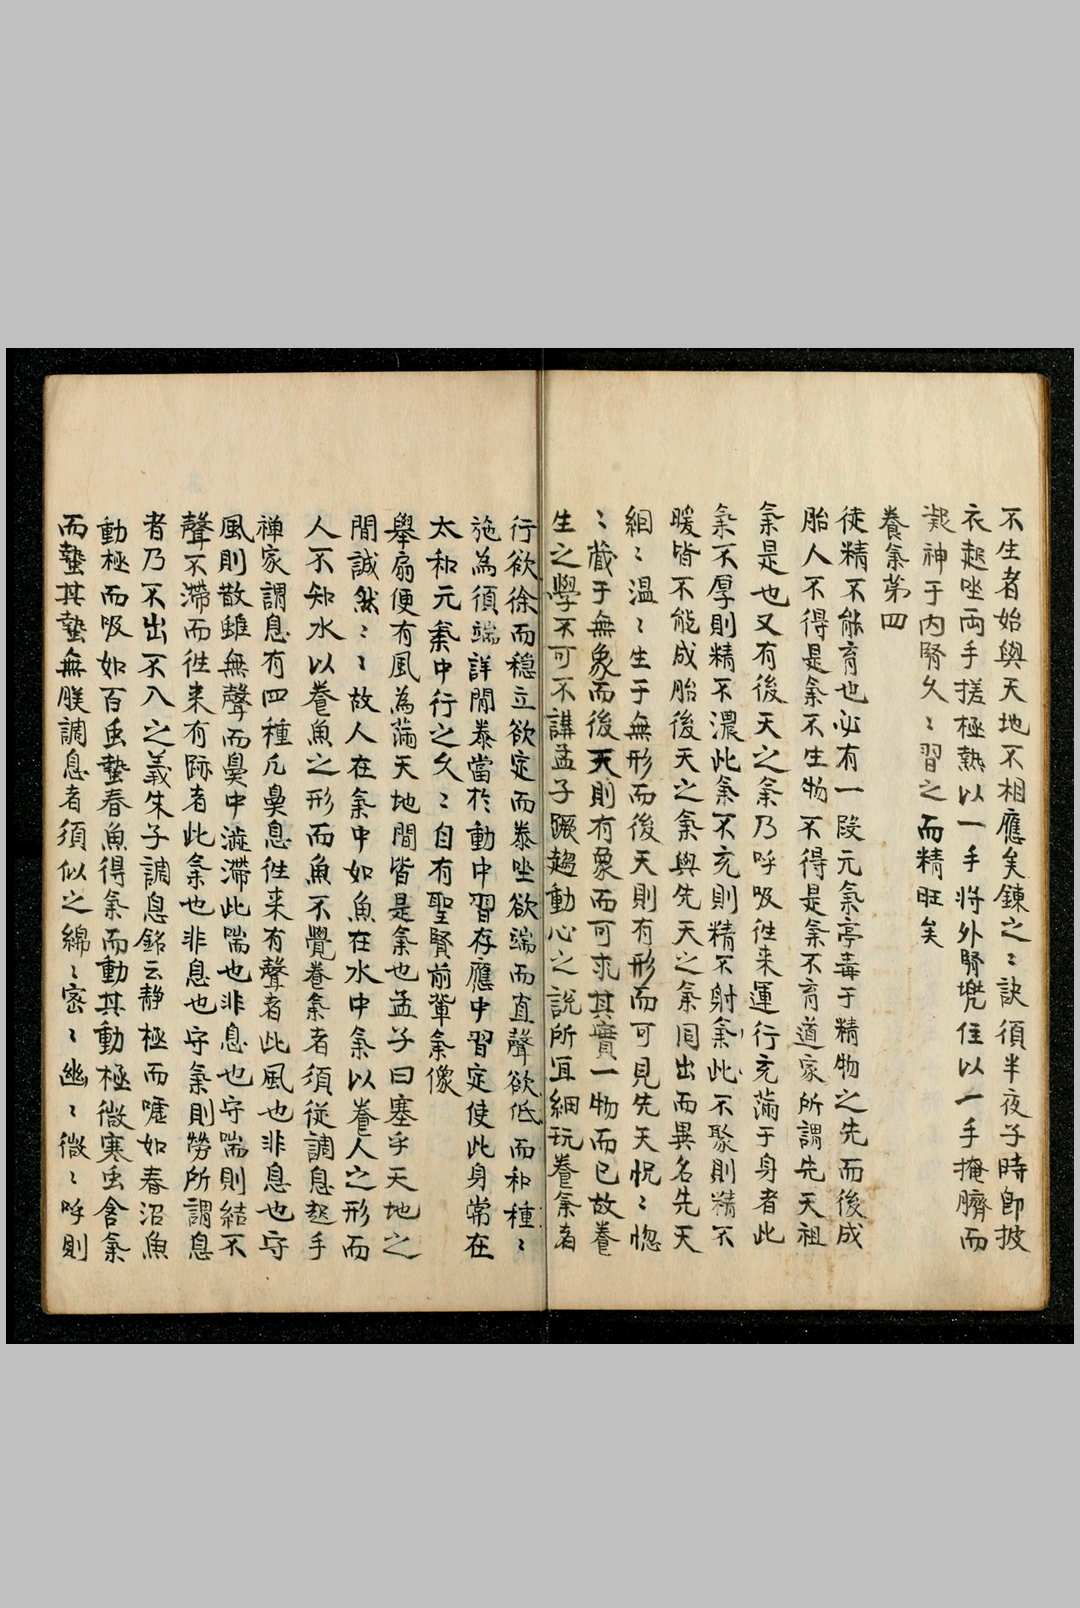 不生者始與天地不相應矣錬之〻訣須半夜子時即披
衣起坐両手搓極熱以一手将外腎兠住以一手掩臍而
凝神于内腎久〻習之而精旺矣
養氣第四
徒精不能育也必有一段元氣亭毒于精物之先而後成
胎人不得是氣不生物不得是氣不育道家所謂先天祖
氣是也又有後天之氣乃呼吸往来運行充満于身者此
氣不厚則精不濃此氣不充則精不射氣此不聚則精不
暖皆不能成胎後天之氣與先天之氣同出而異名先天
絪〻温〻生于無形而後天則有形而可見先天怳〻惚
〻蔵于無象而後天則有象而可求其實一物而已故養
生之學不可不講孟子蹶趨動心之説所宜細玩養氣者
行欲徐而穏立欲定而恭坐欲端而直聲欲低而和種〻
施為須端詳閒泰當於動中習存應中習定使此身常在
太和元氣中行之久〻自有聖賢前輩氣像
舉扇便有風為満天地間皆是氣也孟子曰塞乎天地之
間誠然〻〻故人在氣中如魚在水中氣以養人之形而
人不知水以養魚之形而魚不覺養氣者須従調息起手
禅家謂息有四種凡鼻息往来有聲者此風也非息也守
風則散雖無聲而鼻中澁滞此喘也非息也守喘則結不
聲不滞而往来有跡者此氣也非息也守氣則勞所謂息
者乃不出不入之義朱子調息銘云静極而嘘如春沼魚
動極而吸如百虫蟄春魚得氣而動其動極微寒虫含氣
而蟄其蟄無朕調息者須似之綿〻密〻幽〻微〻呼則